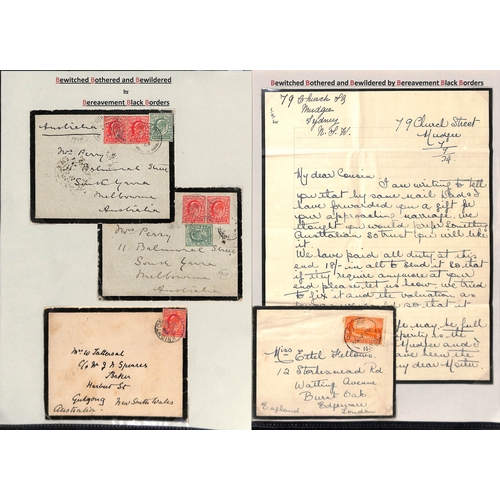 Bewitched Bothered and Bewildered
by
Bereavement Black Borders
Australia
Mrs Perry
11 Balmoral Street
South Yarra
Melbourne
Australia
Mrs Perry
11 Balmoral Street
South Yarra
Melbourne
Australia
Mr W Tattersal
c/o Mr J N Spencer
Baker
Herbert St
Gulgong New South Wales
Australia
Bewitched Bothered and Bewildered by Bereavement Black Borders
79 Church St
Mudgee
Sydney
N.S.W.
79 Church Street
Mudgee
My dear Cousin
I am writing to tell
you that by same mail Dad & I
have forwarded on a gift for
your approaching marriage. We
thought you would
Australian so trust you will like
it
We have paid all duty at this
end 18/- in all to send it so that
if they require anymore at your
end please let us know. We tried
to fix it and the valuation as
so that it
may be full
to the
Mudgee and I
have been the
my dear Mother
Miss Ethel Fellows
12 Storksmead Rd
Watling Avenue
Burnt Oak
Edgeware
England London